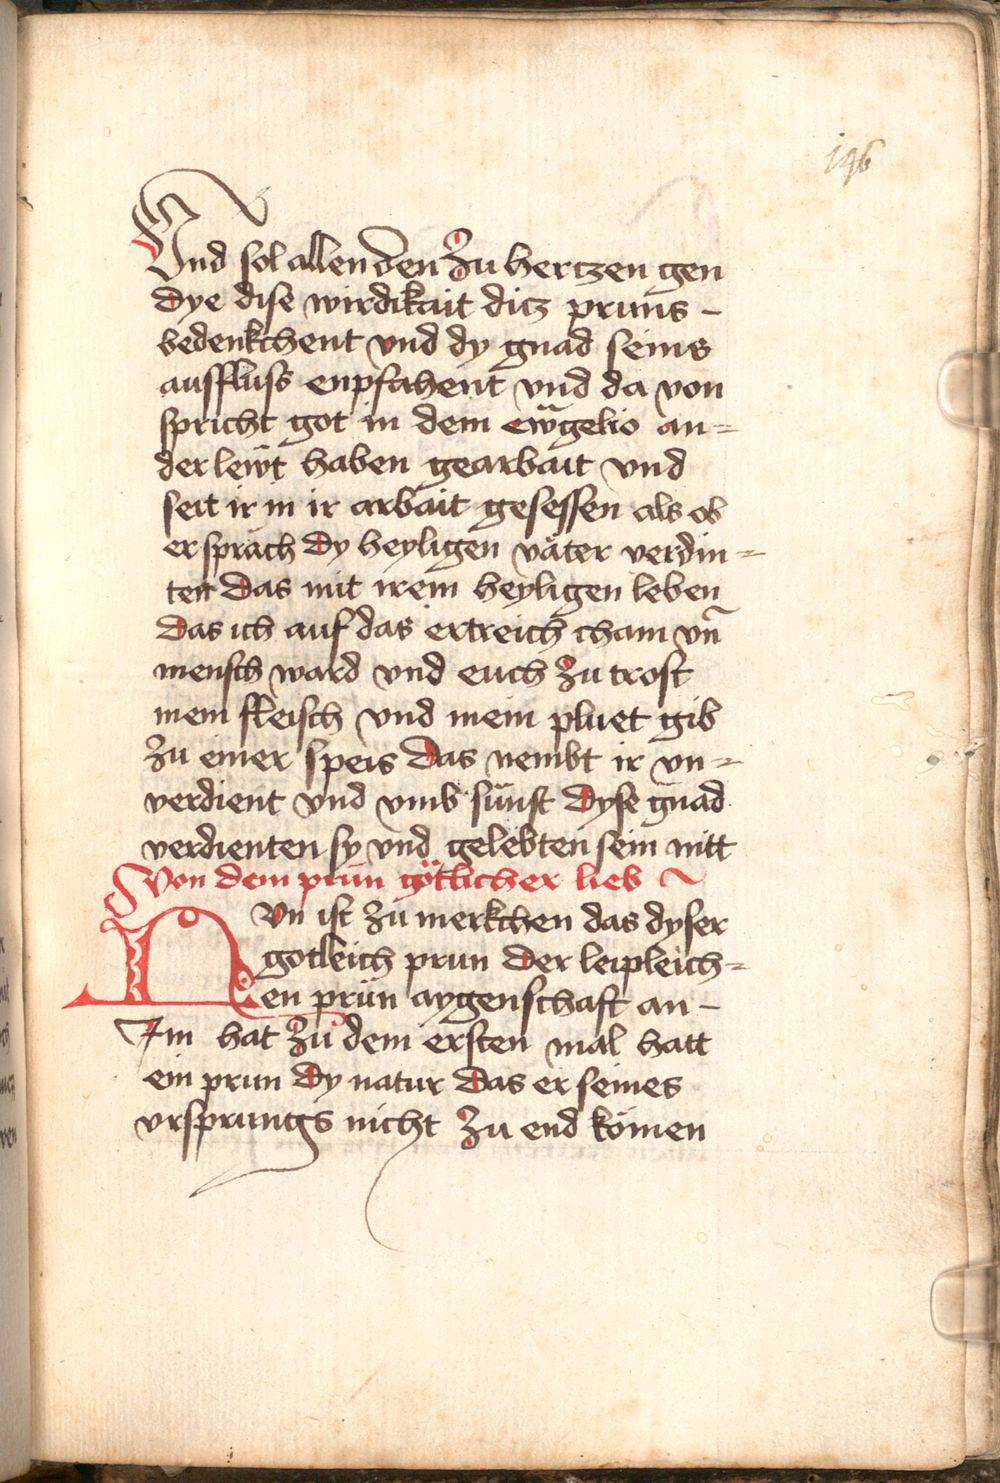 146
Vnd sol allen den zu hertzen gen
dye dise wirdikait ditz pruns -
bedenkchent vnd dy gnad seins
ausfluss enpfahent vnd da von
spricht got in dem ewãgelio an=
der lewt haben gearbait vnd
seit ir in ir arbait gesessen als ob
er sprach dy heyligen väter verdin=
ten das mit irem heyligen leben
das ich auf das ertreich cham vn̄
mensch ward vnd euch zu trost
mein fleisch vnd mein pluet gib
zu einer speis das nembt ir vn=
verdient vnd vmb sünst dyse gnad
verdienten sy vnd gelebten sein nitt
Von dem prun götlicher lieb
NVn ist zu merkchen das dyser
gotleich prun der leipleich=
en prün aygenschaft an -
Im hat zu dem ersten mal hatt
ein prun dy natur das er seines
vrsprungs nicht zu end kömen